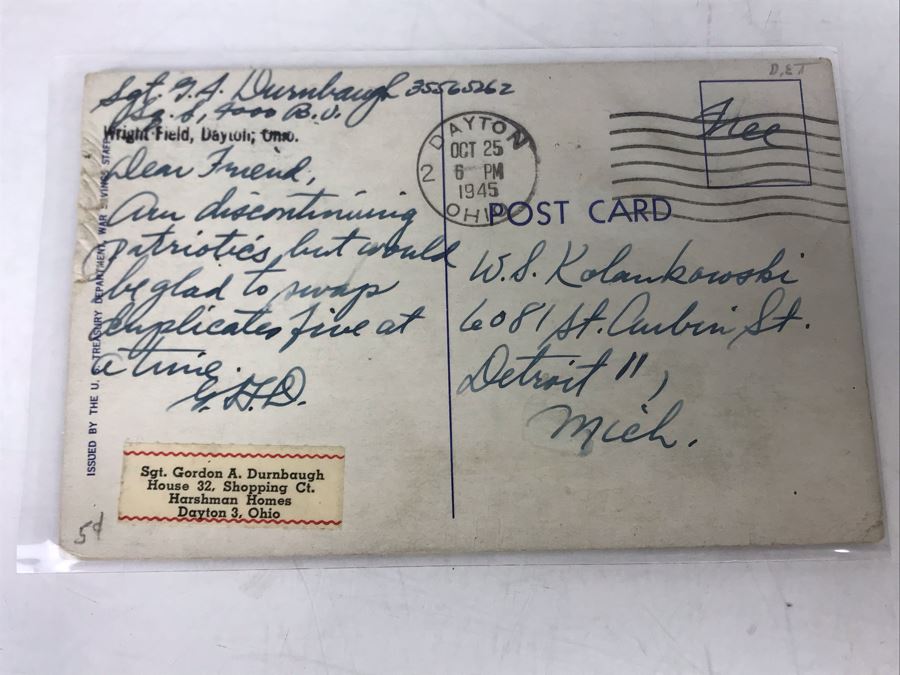 Sgt. G. A. Durnbaugh 35565262
Sq. S, 4000 B.U.
Wright Field, Dayton, Ohio.
Dear Friend,
Am discontinuing
patriotics, but would
be glad to swap
duplicates five at
a time.
G.A.D.
Sgt. Gordon A. Durnbaugh
House 32, Shopping Ct.
Harshman Homes
Dayton 3, Ohio
5¢
ISSUED BY THE U. S. TREASURY DEPARTMENT, WAR SAVINGS STAFF
DAYTON
2
OCT 25
6 PM
1945
OHIO
DET
Free
POST CARD
W. S. Kolankowski
6081 St. Aubin St.
Detroit 11,
Mich.